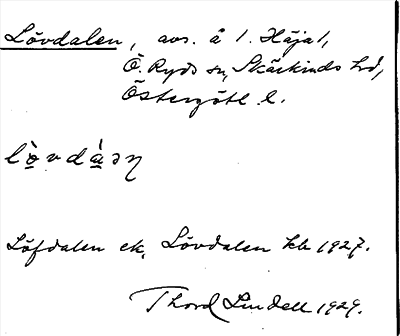 Lövdalen, avs. å 1. Häjal,
Ö. Ryds sn, Skärkinds hd,
Östergötl. l.
lò̤vdà̤əɳ
Löfdalen ek, Lövdalen kb 1927.
Thord Lindell 1929.